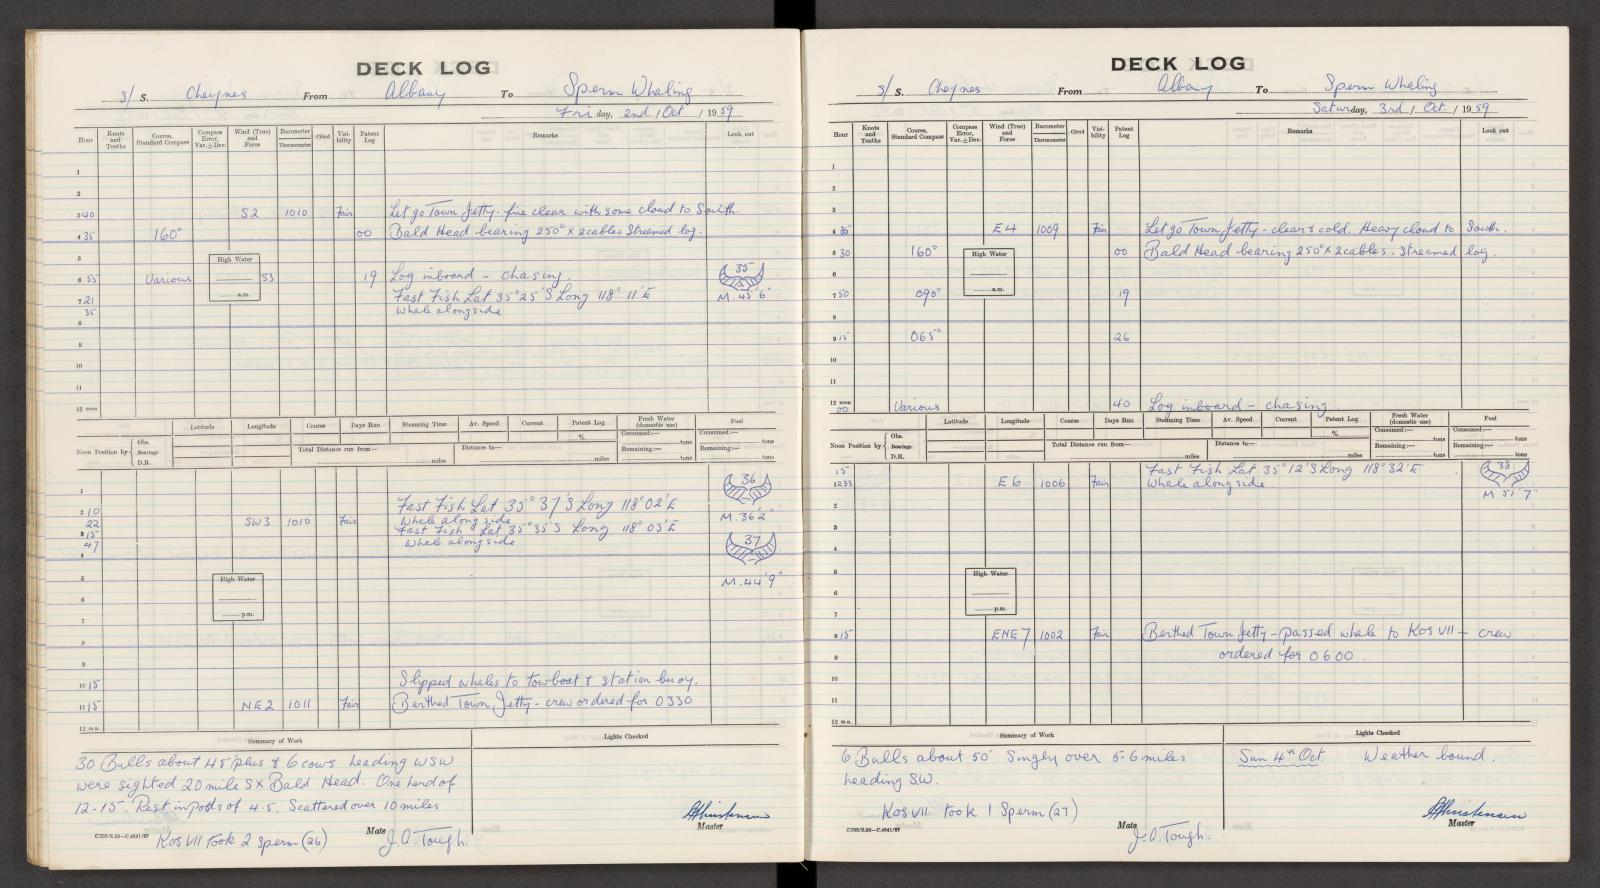 DECK LOG
S/ S. Cheynes From Albany To Sperm Whaling
Fri day, 2nd / Oct / 1959
Hour Knots and Tenths Course, Standard Compass Compass Error, Var. ± Dev. Wind (True) and Force Barometer Thermometer Cloud Visibility Patent Log Remarks Look out
1
2
3 40 S2 1010 Fair Let go Town Jetty - fine clear with some cloud to South.
4 35 160° 00 Bald Head bearing 250° x 2 cables. Streamed log.
5
High Water
6 55 Various S3 19 Log inboard - chasing. 35
a.m.
7 21 Fast Fish Lat 35° 25'S Long 118° 11'E M. 45'6"
35 Whale alongside
8
9
10
11
12 noon
Latitude Longitude Course Days Run Steaming Time Av. Speed Current Patent Log Fresh Water (domestic use) Fuel
% Consumed:— tons Consumed:— tons
Noon Position by Obs. Bearings D.R. Total Distance run from— miles Distance to— miles Remaining:— tons Remaining:— tons
1 36
2 10 Fast Fish Lat 35° 37'S Long 118° 02'E
22 SW3 1010 Fair Whale alongside M. 36'2"
3 15 Fast Fish Lat 35° 35'S Long 118° 03'E
47 Whale alongside 37
4
5 M. 44'9"
High Water
6
p.m.
7
8
9
10 15 Slipped whales to towboat & station buoy.
11 15 NE2 1011 Fair Berthed Town Jetty - crew ordered for 0330
12 m.n.
Summary of Work Lights Checked
30 Bulls about 45' plus & 6 cows heading WSW
were sighted 20 mile S x Bald Head. One herd of
12-15. Rest in pods of 4-5. Scattered over 10 miles
Kos VII took 2 Sperm (26)
Mate J.A. Tough.
Master
DECK LOG
S/ S. Cheynes From Albany To Sperm Whaling
Saturday, 3rd / Oct. / 1959
Hour Knots and Tenths Course, Standard Compass Compass Error, Var. ± Dev. Wind (True) and Force Barometer Thermometer Cloud Visibility Patent Log Remarks Look out
1
2
3
4 35 E4 1009 Fair Let go Town Jetty - clear & cold. Heavy cloud to South.
5 30 160° 00 Bald Head bearing 250° x 2 cables. Streamed log.
High Water
6
a.m.
7 50 090° 19
8
9 15 065° 26
10
11
12 noon
00 Various 40 Log inboard - chasing
Latitude Longitude Course Days Run Steaming Time Av. Speed Current Patent Log Fresh Water (domestic use) Fuel
% Consumed:— tons Consumed:— tons
Noon Position by Obs. Bearings D.R. Total Distance run from— miles Distance to— miles Remaining:— tons Remaining:— tons
15 Fast Fish Lat 35° 12'S Long 118° 32'E 38
1233 E6 1006 Fair Whale alongside. M 51'7"
2
3
4
5
High Water
6
p.m.
7
8 15 ENE 7 1002 Fair Berthed Town Jetty - passed whale to Kos VII - crew
9 ordered for 0600.
10
11
12 m.n.
Summary of Work Lights Checked
6 Bulls about 50' Singly over 5-6 miles
heading SW.
Kos VII took 1 Sperm (27)
Sun 4th Oct. Weather bound.
Mate J.A. Tough.
Master